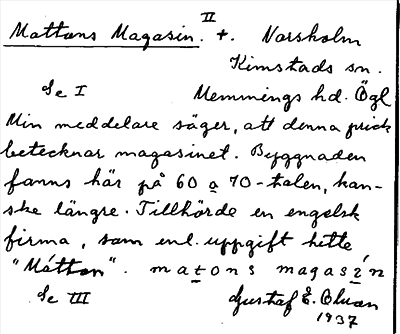 II
Mattons Magasin. +. Norsholm
Kimstads sn.
Se I Memmings hd. Ögl
Min meddelare säger, att denna prick
betecknar magasinet. Byggnaden
fanns här på 60 a 70-talen, kan-
ske längre. Tillhörde en engelsk
firma, som enl. uppgift hette
"Mátton". matons magasín
Se III Gustaf E. Olsson
1937